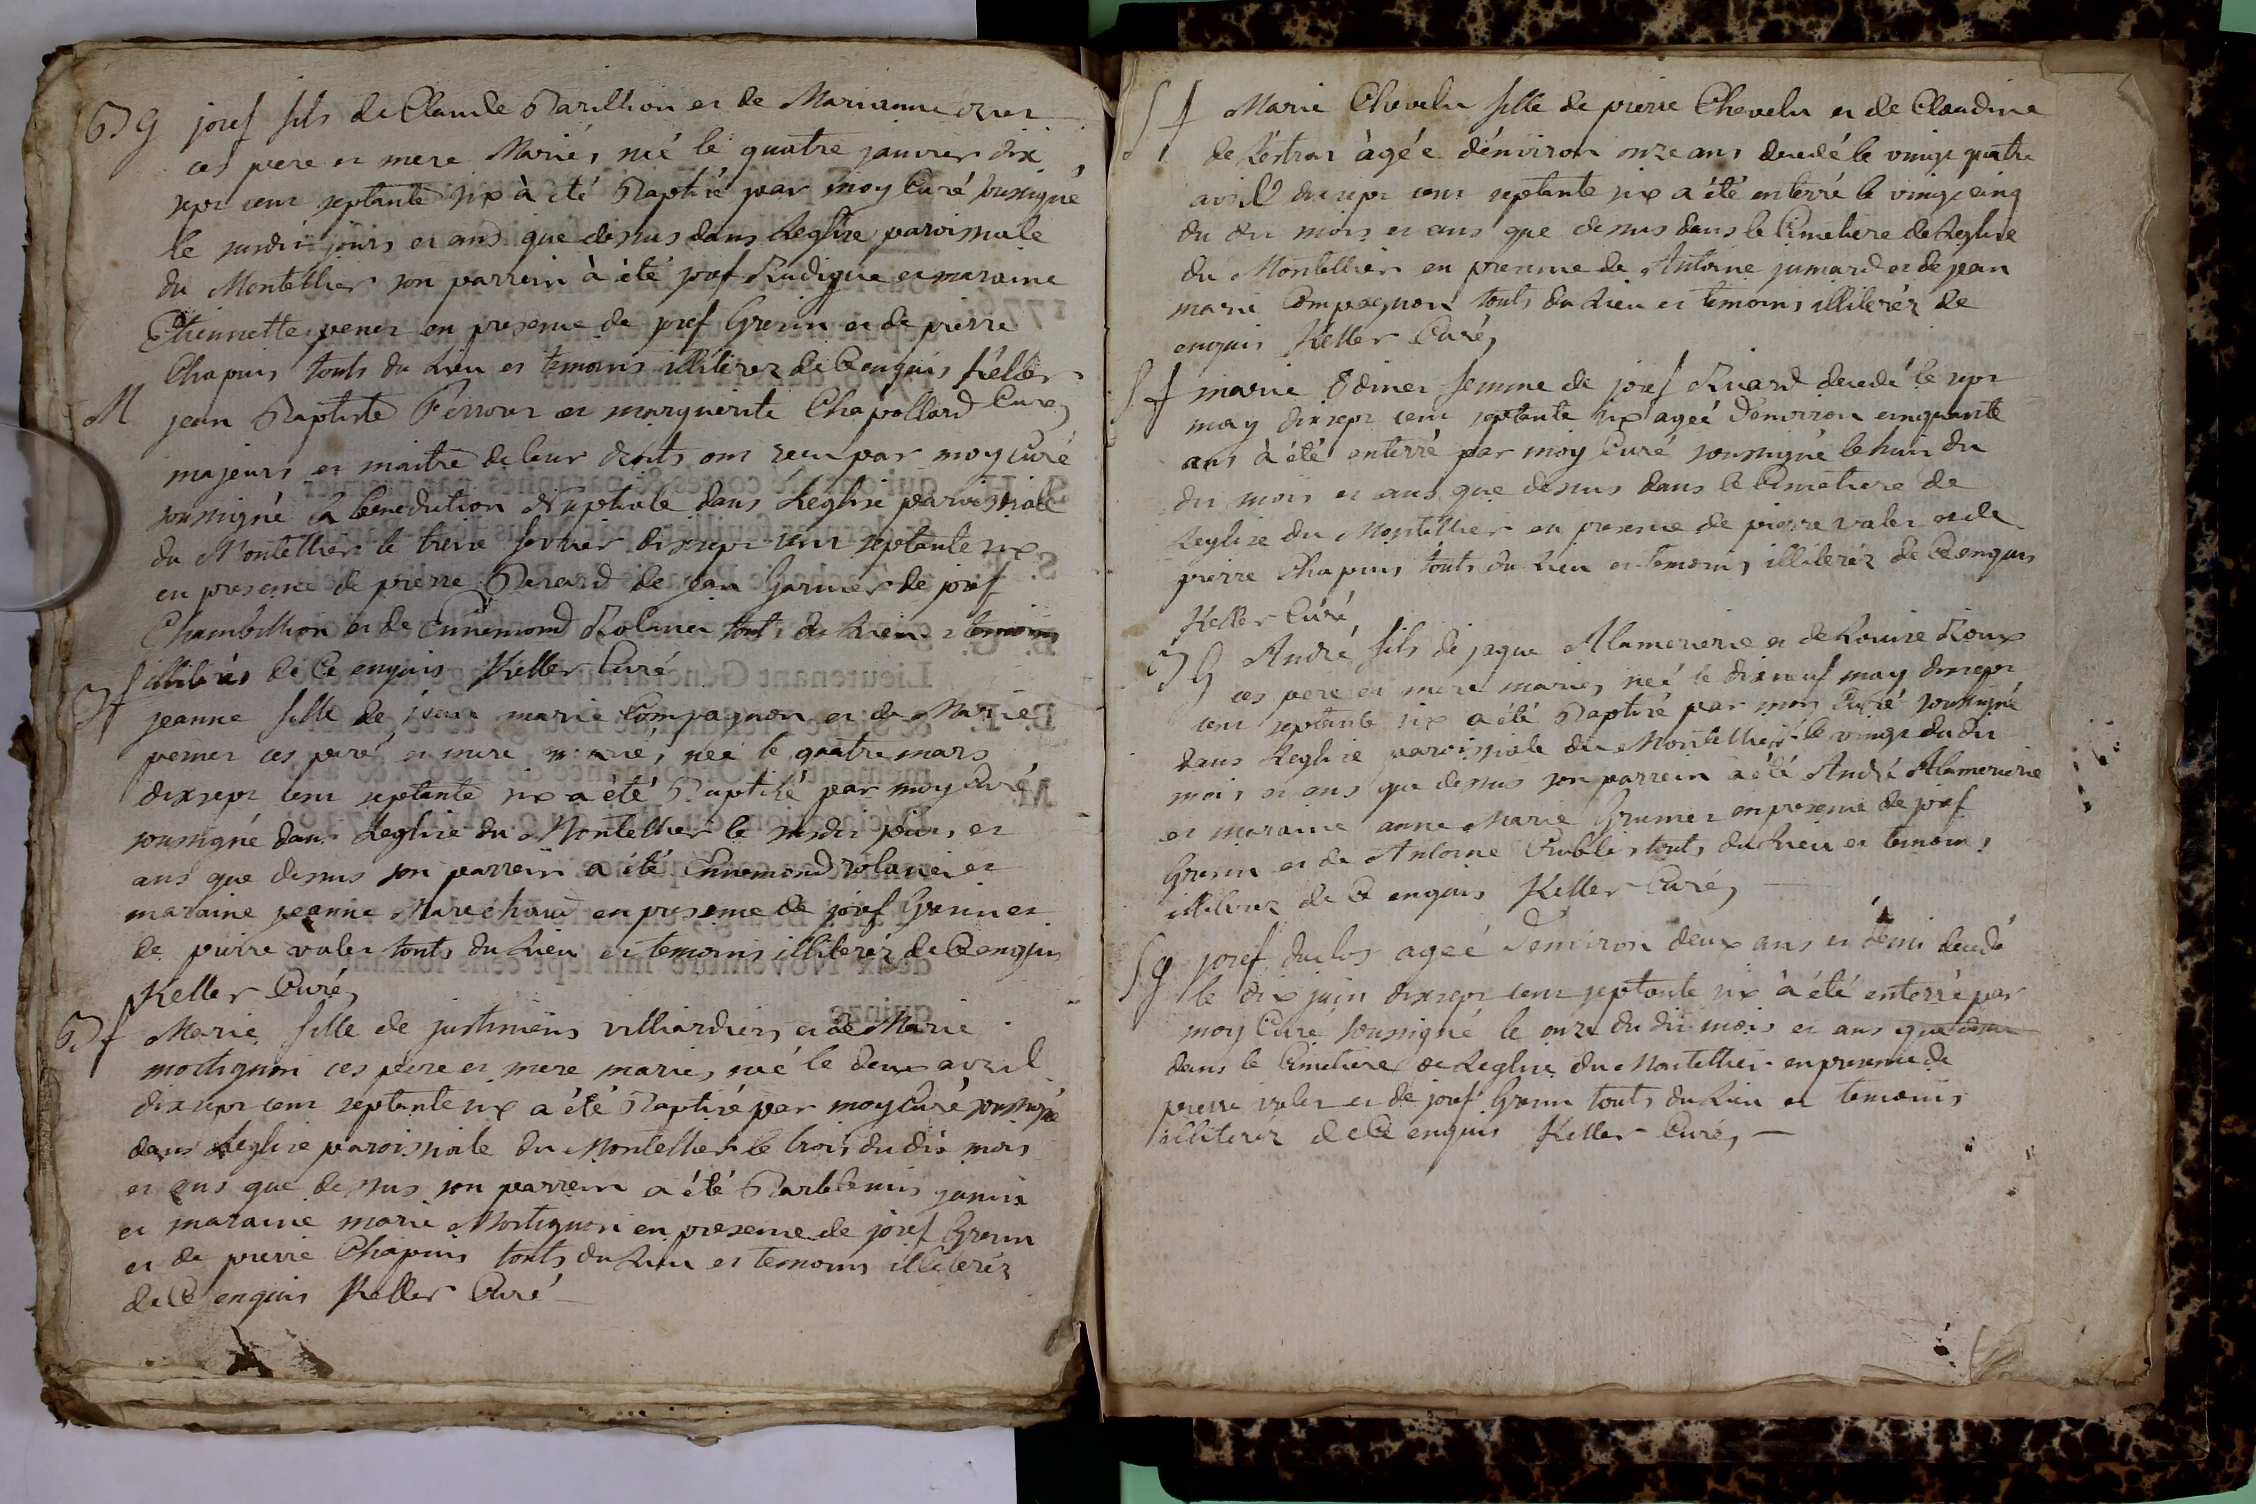 B g josef fils de Claude Barillion et de Marianne
ces pere et mere Mariés né le quatre janvier dix
sept cent septante six à été Baptisé par moy Curé sousigné
le susdit jours et ans que desus dans Leglise paroissiale
du Montellier son parrein à été josef Rudigue et maraine
Etiennette pener en presence de josef Grenin et de pierre
Chapuis touts du Lieu et temoins illiterez de Ce enquis Keller
Curé,
M jean Baptiste Ferrour et marguerite Chapollard
majeurs et maitre de leur droits ont recu par moy curé
sousigné la benediction Nuptiale dans Leglise paroissiale
du Montellier le treize fevrier dixsept cent septante six
en presence de pierre Berard de jean Garnier de josef
Chambillion et de Ennemond Rolinei touts du Lieu et temoins
illiteres de Ce enquis Keller Curé
B f jeanne fille de jean marie Compagnon et de Marie
perner ces pere et mere marié, née le quatre mars
dixsept cent septante six a été Baptisé par moy Curé
sousigné dans Leglise du Montellier le susdit jours et
ans que desus son parrein a été Ennemond rolanei et
maraine jeanne Marechard en presence de josef Grenin et
de pierre valer touts du Lieu et temoins illiteréz de Ce enquis
Keller Curé,
B f Marie fille de justiniens villiardiers et de Marie
mortignon ces pere et mere maries, né le deux avril
dixsept cent septante six a été Baptisé par moy Curé sousigné
dans Leglise paroissiale du Montellier le trois du dit mois
et ans que desus son parrein a été Bartelemis janin
et maraine marie Mortignon en presence de josef Grenin
et de pierre Chapuis touts du Lieu et temoins illiteréz
de Ce enquis Keller Curé
S f Marie Chevelu fille de pierre Chevelu et de Claudine
de Lestras àgée dénviron onze ans decedé le vingt quatre
avril dixsept cent septante six a été enterré le vingt cinq
du dit mois et ans que desus dans le Cimetiere de Leglise
du Montellier en presence de Antoine jumard et de jean
marie Compagnon touts du Lieu et temoins illiteréz de
enquis Keller Curé,
S f marie Edinei femme de josef Ruard decedé le sept
may dixsept cent septante six ageé d'environ cinquante
ans à été enterré par moy Curé sousigné le huit du
dit mois et ans que desus dans le Cimetiere de
Leglise du Montellier en presence de pierre valer et de
pierre Chapuis touts du Lieu et temoins illiteréz de Ce enquis
Keller Curé
B g André fils de jaque Alamerierie et de Louise Roux
ces pere et mere maries né le dixneuf may dixsept
cent septante six a été Baptisé par moy Curé sousigné
dans Leglise paroissiale du Montellier le vingt du dit
mois et ans que desus son parrein a été André Alamerierie
et maraine anne Marie Grumer en presence de josef
Grenin et de Antoine Curblis touts du Lieu et temoins
illiterez de Ce enquis Keller Curé,
S g josef duclos ageé d'environ deux ans et demi decedé
le dix juin dixsept cent septante six à été enterré par
moy Curé sousigné le onze du dit mois et ans que desus
dans le Cimetiere de Leglise du Montellier en presence de
pierre valer et de josef Grenin touts du Lieu et temoins
illiterez de Ce enquis Keller Curé,